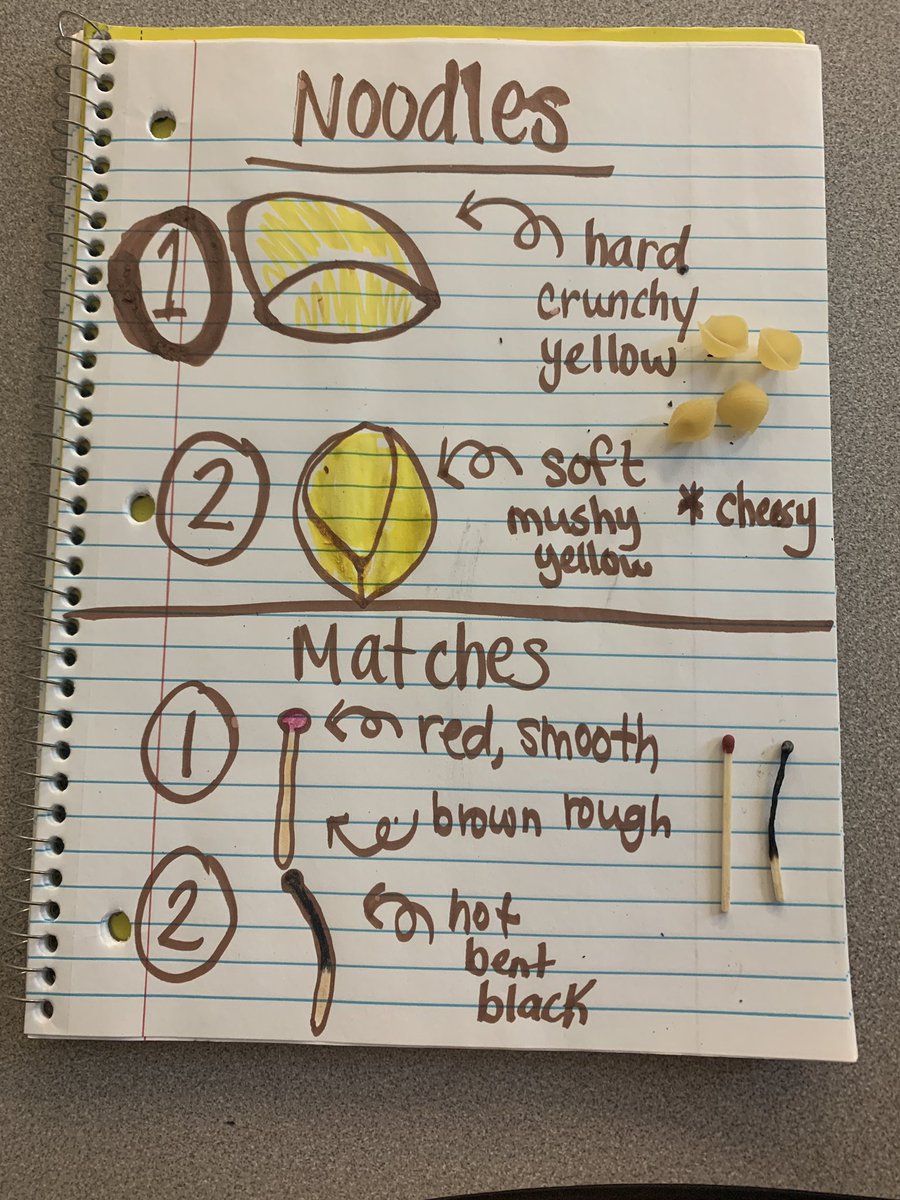 Noodles
1
hard
crunchy
yellow
2
soft
mushy
yellow
* cheesy
Matches
1
red, smooth
brown rough
2
hot
bent
black